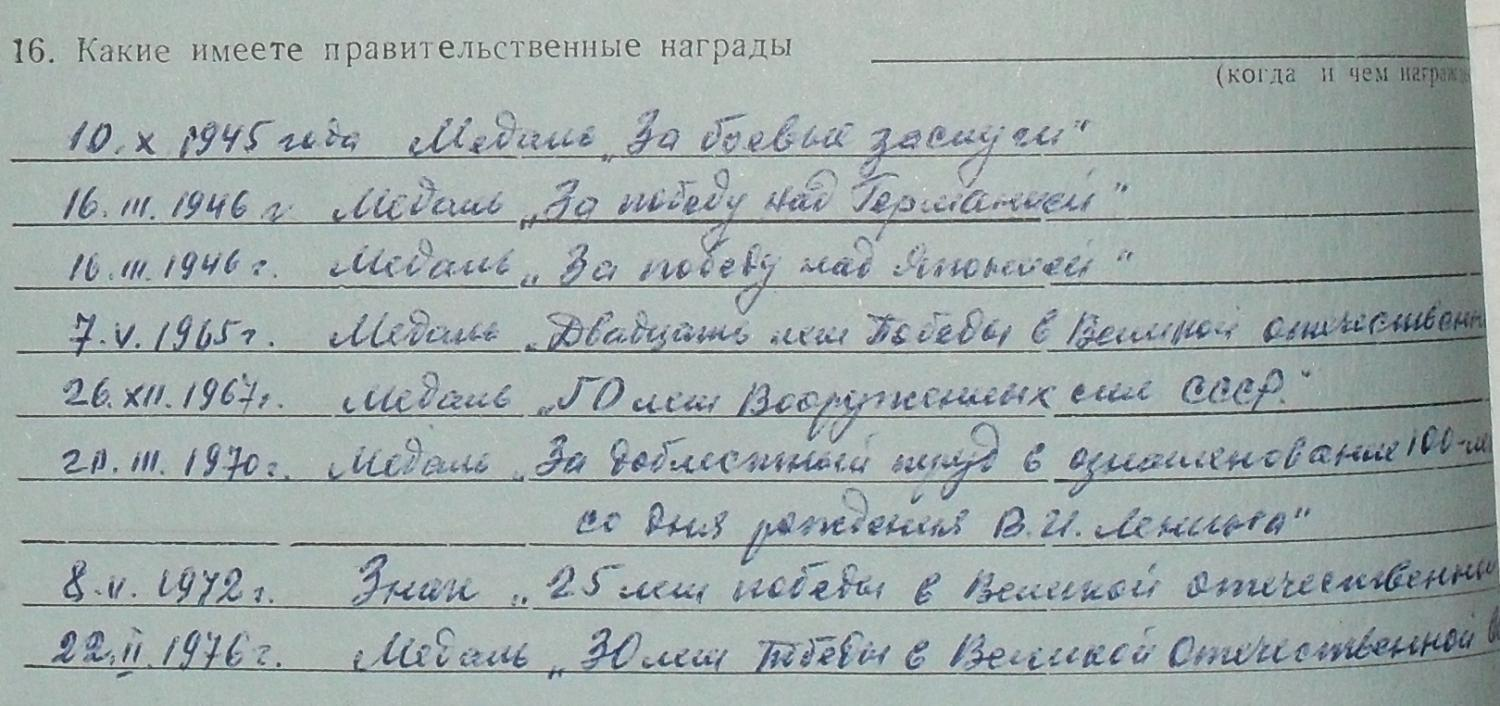 16. Какие имеете правительственные награды
(когда и чем награжд
10. X 1945 года Медаль „За боевые заслуги“
16. III. 1946 г. Медаль „За победу над Германией“
16. III. 1946 г. Медаль „За победу над Японией“
7. V. 1965 г. Медаль „Двадцать лет Победы в Великой отечественн
26. XII. 1967 г. Медаль „50 лет Вооруженных сил СССР.“
III. 1970 г. Медаль „За доблестный труд в ознаменование 100-ле
со дня рождения В. И. Ленина“
1972 г. Знак „25 лет победы в Великой отечественной
22. II. 1976 г. Медаль „30 лет Победы в Великой Отечественной